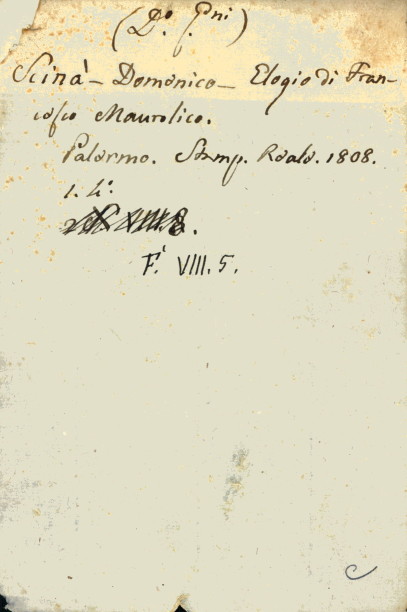 (D.º f. Gni)
Scinà - Domenico - Elogio di Fran-
cesco Maurolico.
Palermo. Stamp. Reale. 1808.
F. VIII. 5.